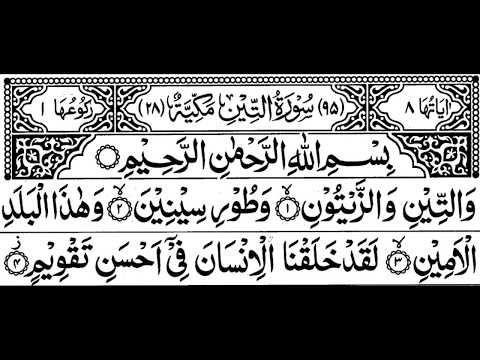 اٰیَاتُهَا ۸ (۹۵) سُوْرَةُ التِّیْنِ مَكِّیَّةٌ (۲۸) رُكُوْعُهَا ۱
بِسْمِ اللهِ الرَّحْمٰنِ الرَّحِیْمِ ○
وَالتِّیْنِ وَالزَّیْتُوْنِ ۙ﴿۱﴾ وَطُوْرِ سِیْنِیْنَ ۙ﴿۲﴾ وَهٰذَا الْبَلَدِ
الْاَمِیْنِ ۙ﴿۳﴾ لَقَدْ خَلَقْنَا الْاِنْسَانَ فِیْۤ اَحْسَنِ تَقْوِیْمٍ ؗ﴿۴﴾